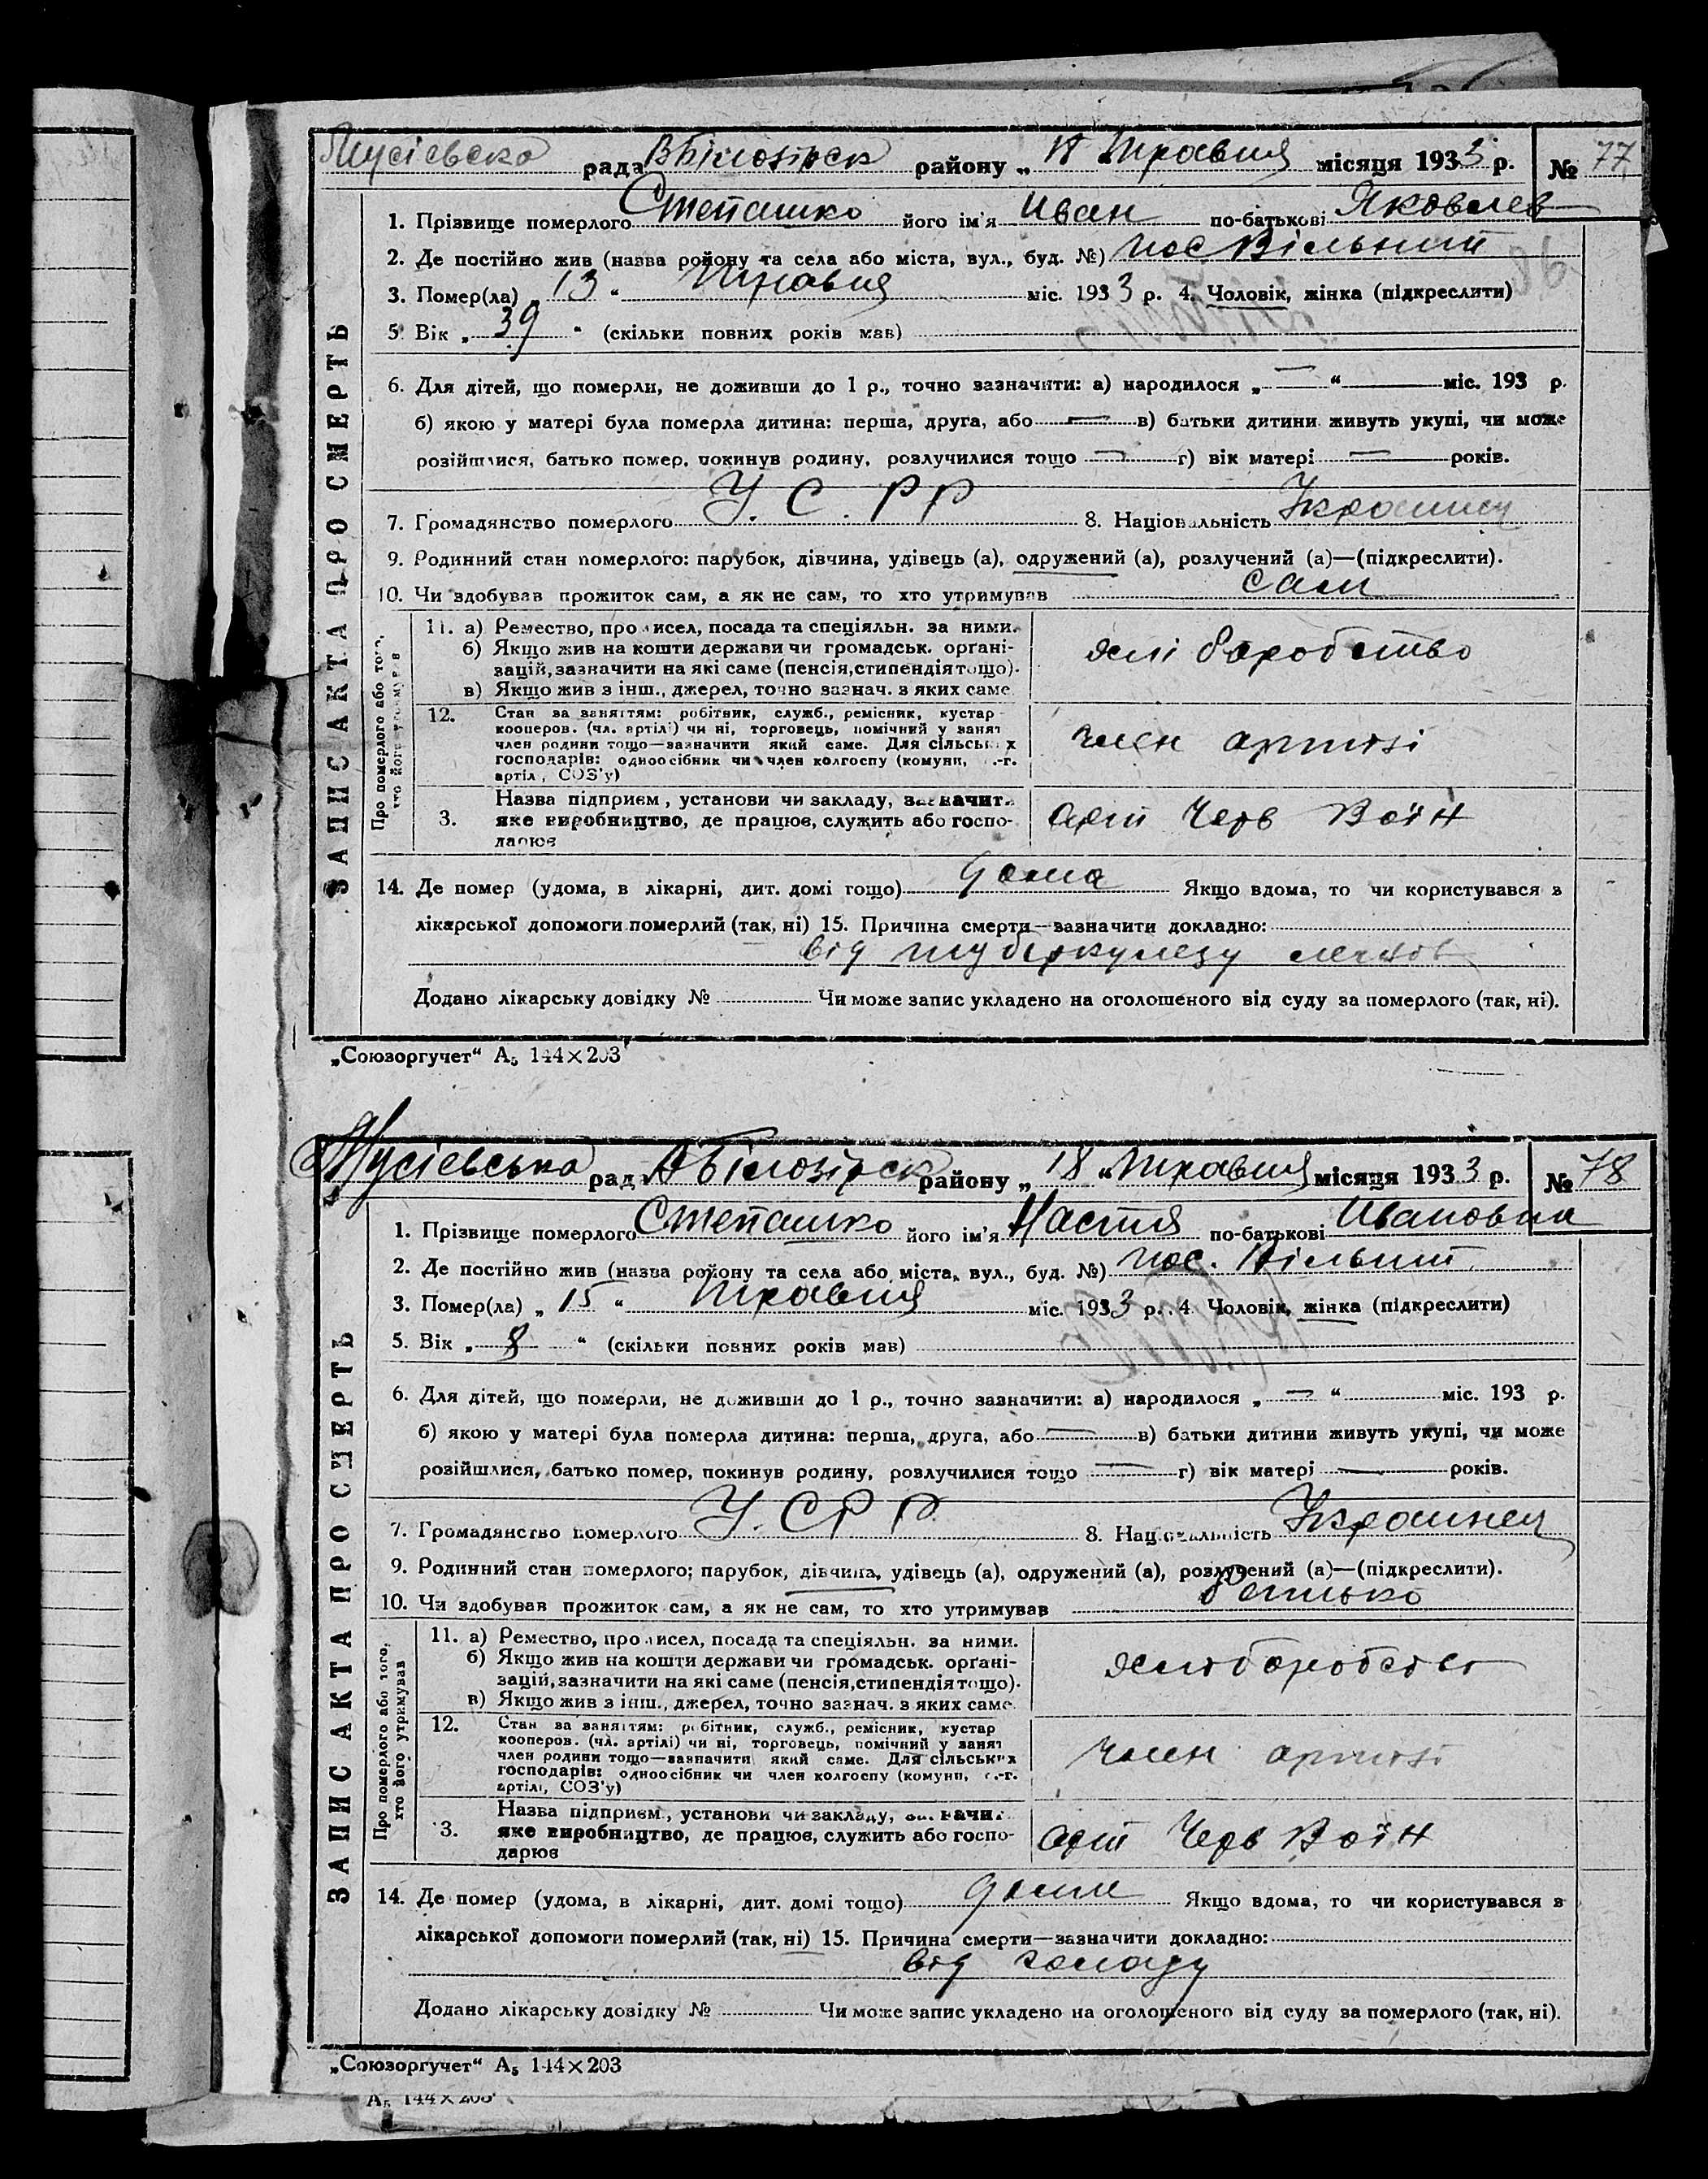 Мусієвська рада ВБілозірск району „ травня місяця 1933 р. № 77
1. Прізвище померлого Степашко його ім'я Иван по-батькові Яковлев
2. Де постійно жив (назва району та села або міста, вул., буд. №) пос Вільний
3. Помер(ла) „ 13 “ травня міс. 1933 р. 4. Чоловік, жінка (підкреслити)
5. Вік „ 39 “ (скільки повних років мав)
6. Для дітей, що померли, не доживши до 1 р., точно зазначити: а) народилося „ — “ міс. 193 р.
б) якою у матері була померла дитина: перша, друга, або — в) батьки дитини живуть укупі, чи може
розійшлися, батько помер, покинув родину, розлучилися тощо — г) вік матері — років.
7. Громадянство померлого У.С.РР 8. Національність Украинец
9. Родинний стан померлого: парубок, дівчина, удівець (а), одружений (а), розлучений (а)—(підкреслити).
10. Чи здобував прожиток сам, а як не сам, то хто утримував сам
ЗАПИС АКТА ПРО СМЕРТЬ
Про померлого або того,
хто його утримував
11. а) Ремество, промисел, посада та спеціяльн. за ними.
б) Якщо жив на кошти держави чи громадськ. орґані-
зацій, зазначити на які саме (пенсія, стипендія тощо).
в) Якщо жив з інш., джерел, точно зазнач. з яких саме
хліборобство
12. Стан за заняттям: робітник, служб., ремісник, кустар
кооперов. (чл. артілі) чи ні, торговець, помічний у занят
член родини тощо—зазначити який саме. Для сільських
господарів: одноосібник чи член колгоспу (комуни, с.-г.
артіл, СОЗ'у)
член артілі
3. Назва підприєм, установи чи закладу, зазначит.
яке виробництво, де працює, служить або госпо-
дарює
арт Черв Воїн
14. Де помер (удома, в лікарні, дит. домі тощо) дома Якщо вдома, то чи користувався з
лікарської допомоги померлий (так, ні) 15. Причина смерти—зазначити докладно:
від туберкулезу легков
Додано лікарську довідку № Чи може запис укладено на оголошеного від суду за померлого (так, ні).
„Союзоргучет“ А₅ 144×203
Мусієвська рад ВБілозірск району „ 18 “ травня місяця 1933 р. № 78
1. Прізвище померлого Степашко його ім'я Настя по-батькові Ивановна
2. Де постійно жив (назва району та села або міста, вул., буд. №) пос. Вільний
3. Помер(ла) „ 15 “ травня міс. 1933 р. 4 Чоловік, жінка (підкреслити)
5. Вік „ 8 “ (скільки повних років мав)
6. Для дітей, що померли, не доживши до 1 р., точно зазначити: а) народилося „ — “ міс. 193 р.
б) якою у матері була померла дитина: перша, друга, або — в) батьки дитини живуть укупі, чи може
розійшлися, батько помер, покинув родину, розлучилися тощо — г) вік матері — років.
7. Громадянство померлого У.СРР 8. Національність Украинец
9. Родинний стан померлого; парубок, дівчина, удівець (а), одружений (а), розлучений (а)—(підкреслити).
10. Чи здобував прожиток сам, а як не сам, то хто утримував батько
ЗАПИС АКТА ПРО СМЕРТЬ
Про померлого або того,
хто його утримував
11. а) Ремество, промисел, посада та спеціяльн. за ними.
б) Якщо жив на кошти держави чи громадськ. орґані-
зацій, зазначити на які саме (пенсія, стипендія тощо).
в) Якщо жив з інш., джерел, точно зазнач. з яких саме
хліборобство
12. Стан за заняттям: робітник, служб., ремісник, кустар
кооперов. (чл. артілі) чи ні, торговець, помічний у занят
член родини тощо—зазначити який саме. Для сільських
господарів: одноосібник чи член колгоспу (комуни, с.-г.
артілі, СОЗ'у)
член артілі
3. Назва підприєм., установи чи закладу, зазначи.
яке виробництво, де працює, служить або госпо-
дарює
арт Черв Воїн
14. Де помер (удома, в лікарні, дит. домі тощо) дома Якщо вдома, то чи користувався з
лікарської допомоги померлий (так, ні) 15. Причина смерти—зазначити докладно:
від голоду
Додано лікарську довідку № Чи може запис укладено на оголошеного від суду за померлого (так, ні).
„Союзоргучет“ А₅ 144×203
А₅ 144×203